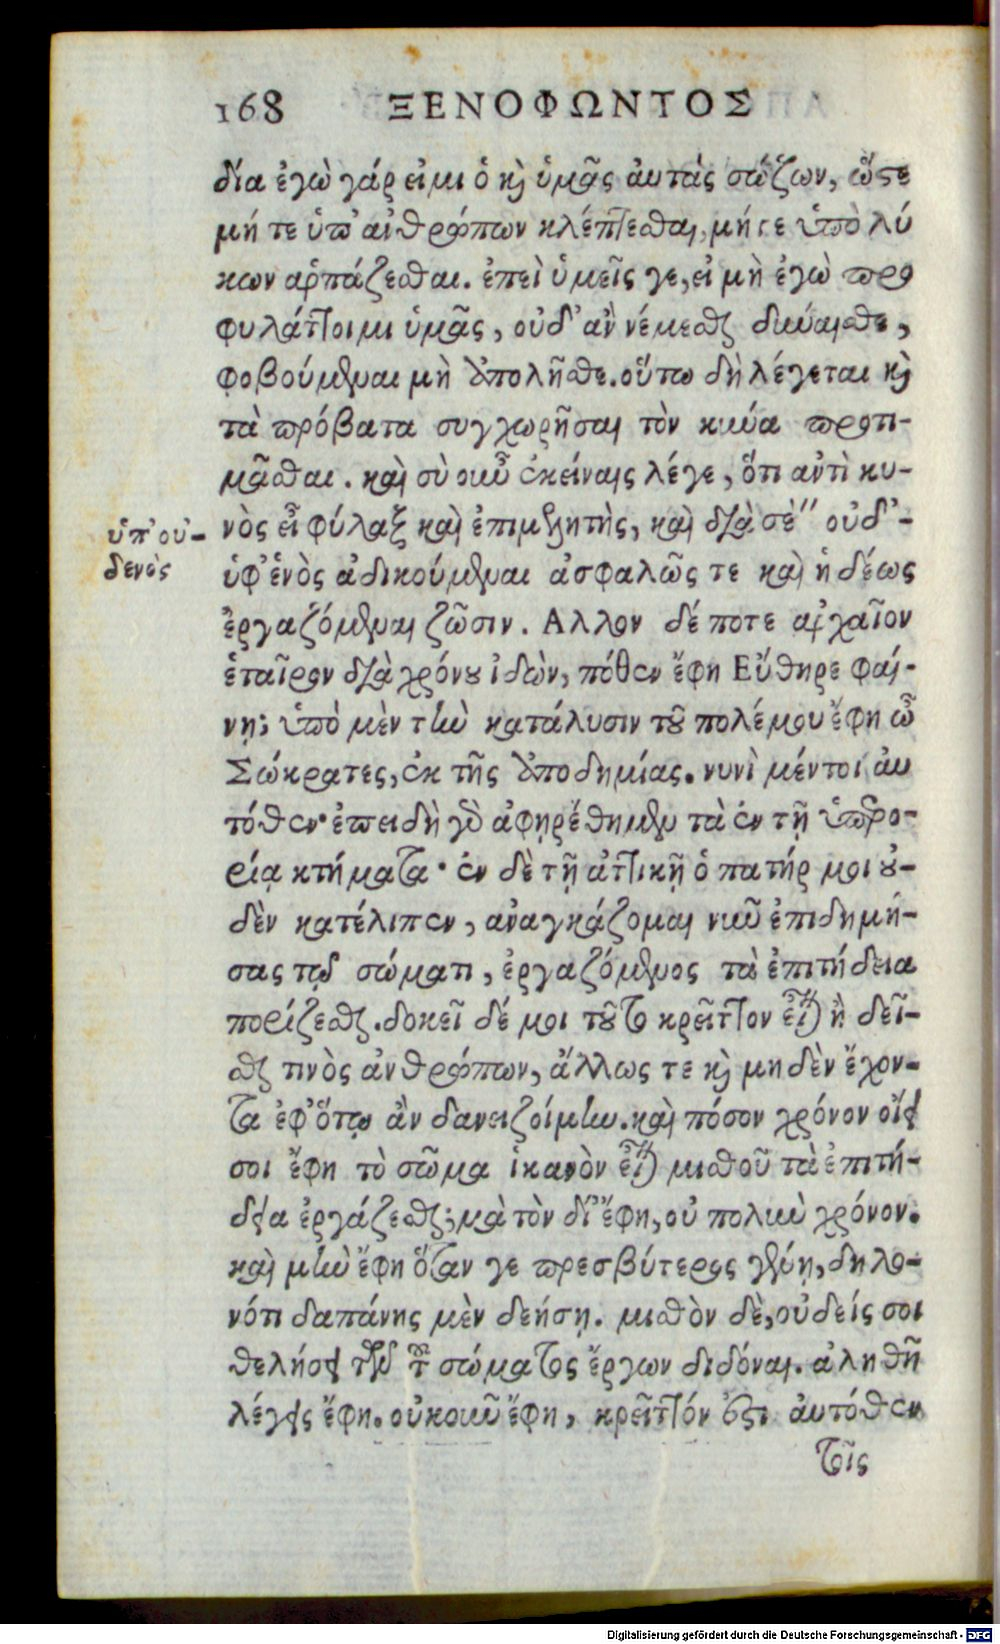 168 ΞΕΝΟΦΩΝΤΟΣ
δία ἐγὼ γάρ εἰμι ὁ κὶ ὑμᾶς ἀυτάς σώζων, ὥστε
μή τε ὑπ' ἀνθρώπων κλέπτεσθαι, μήτε ὑπὸ λύ
κων αρπάζεσθαι. ἐπεὶ ὑμεῖς γε, εἰ μὴ ἐγὼ προ
φυλάττοιμι ὑμᾶς, οὐδ' ἂν νέμεσθαι δύναισθε,
φοβούμεναι μὴ ἀπολῆσθε. οὕτω δὴ λέγεται κὶ
τὰ πρόβατα συγχωρῆσαι τὸν κύνα προτι-
μᾶσθαι. καὶ σὺ οὖν ἐκείναις λέγε, ὅτι ἀντὶ κυ-
νὸς εἶ φύλαξ καὶ ἐπιμελητὴς, καὶ διὰ σὲ" οὐδ'-
ὑπ' οὐ-
δενὸς
ὑφ' ἑνὸς ἀδικούμεναι ἀσφαλῶς τε καὶ ἡδέως
ἐργαζόμεναι ζῶσιν. Αλλον δέ ποτε ἀρχαῖον
ἑταῖρον διὰ χρόνου ἰδὼν, πόθεν ἔφη Εὔθηρε φαί-
νῃ; ὑπὸ μὲν τὴν κατάλυσιν τοῦ πολέμου ἔφη ὦ
Σώκρατες, ἐκ τῆς ἀποδημίας. νυνὶ μέντοι αὐ
τόθεν· ἐπειδὴ γὰρ ἀφῃρέθημεν τὰ ἐν τῇ ὑπερο-
ρίᾳ κτήματα· ἐν δὲ τῇ ἀττικῇ ὁ πατήρ μοι οὐ-
δὲν κατέλιπεν, ἀναγκάζομαι νῦν ἐπιδημή-
σας τῷ σώματι, ἐργαζόμενος τὰ ἐπιτήδεια
πορίζεσθαι. δοκεῖ δέ μοι τοῦτο κρεῖττον εἶναι ἢ δεῖ-
σθαι τινὸς ἀνθρώπων, ἄλλως τε κὶ μηδὲν ἔχον-
τα ἐφ' ὅτῳ ἂν δανειζοίμην. καὶ πόσον χρόνον οἴει
σοι ἔφη τὸ σῶμα ἱκανὸν εἶναι μισθοῦ τὰ ἐπιτή-
δεια ἐργάζεσθαι; μὰ τὸν δί' ἔφη, οὐ πολὺν χρόνον.
καὶ μὴν ἔφη ὅταν γε πρεσβύτερος γένῃ, δηλο-
νότι δαπάνης μὲν δεήσῃ. μισθὸν δὲ, οὐδείς σοι
θελήσει τῶν τοῦ σώματος ἔργων διδόναι. ἀληθῆ
λέγεις ἔφη. οὐκοῦν ἔφη, κρεῖττόν ἐστι ἀυτόθεν
τοῖς
Digitalisierung gefördert durch die Deutsche Forschungsgemeinschaft - DFG